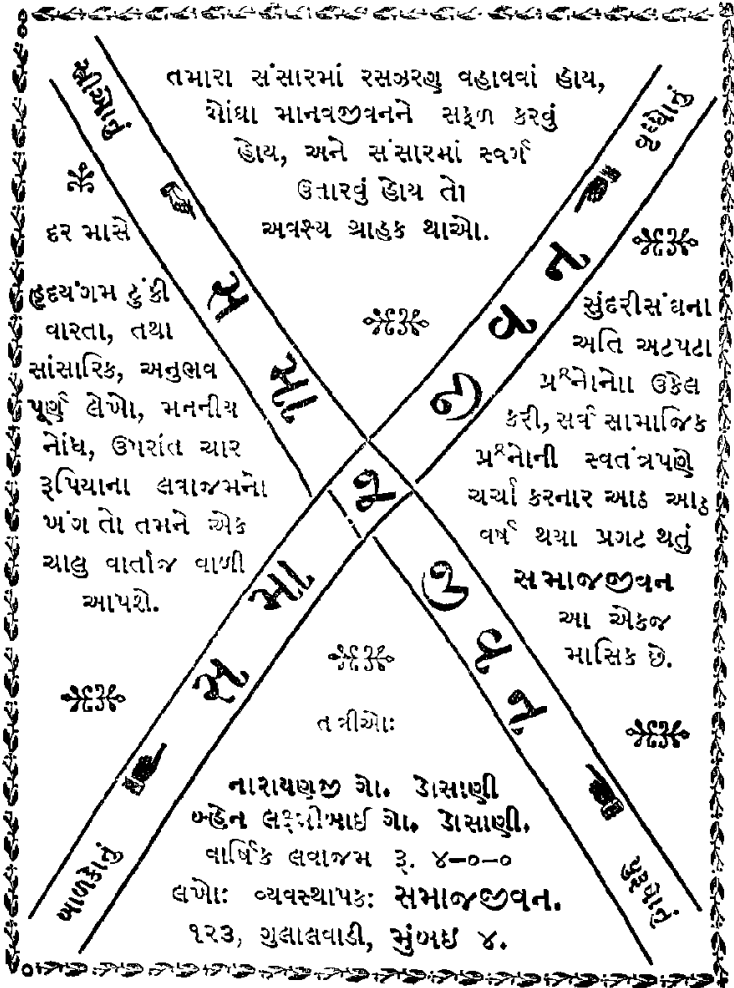 તમારા સંસારમાં રસઝરણુ વહાવવાં હોય,
મોંઘા માનવજીવનને સફળ કરવું
હોય, અને સંસારમાં સ્વર્ગ
ઉતારવું હોય તો
અવશ્ય ગ્રાહક થાઓ.
સ્ત્રીઓનું સમાજજીવન
વૃદ્ધોનું
સમાજજીવન
દર માસે
હૃદયંગમ ટુંકી
વારતા, તથા
સાંસારિક, અનુભવ
પૂર્ણ લેખો, મનનીય
નોંધ, ઉપરાંત ચાર
રૂપિયાના લવાજમનો
ખંગ તો તમને એક
ચાલુ વાર્તાજ વાળી
આપશે.
સુંદરીસંઘના
અતિ અટપટા
પ્રશ્નોનો ઉકેલ
કરી, સર્વ સામાજિક
પ્રશ્નોની સ્વતંત્રપણે
ચર્ચા કરનાર આઠ આઠ
વર્ષ થયા પ્રગટ થતું
સમાજજીવન
આ એકજ
માસિક છે.
તંત્રીઓ:
નારાયણજી ગો. ઠોસાણી
બ્હેન લક્ષ્મીબાઈ ગો. ઠોસાણી.
વાર્ષિક લવાજમ રૂ. ૪-૦-૦
લખો: વ્યવસ્થાપક: સમાજજીવન.
૧૨૩, ગુલાલવાડી, મુંબઇ ૪.
બાળકોનું
પુરૂષોનું